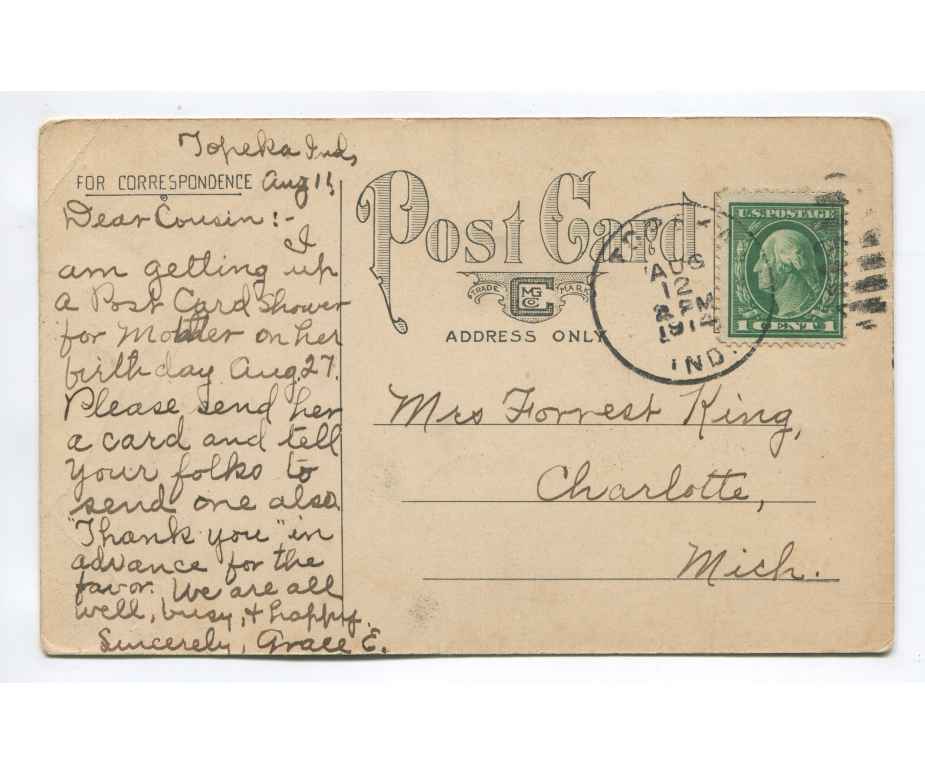 Topeka Ind,
FOR CORRESPONDENCE Aug 11,
Dear Cousin:-
I
am getting up
a Post Card Shower
for Mother on her
birthday Aug. 27.
Please send her
a card and tell
your folks to
send one also.
"Thank you" in
advance for the
favor. We are all
well, busy, & happy.
Sincerely, Grace E.
Post Card
TRADE MARK
ADDRESS ONLY
U.S. POSTAGE
1 CENT 1
AUG
12
PM
1914
IND.
Mrs Forrest King,
Charlotte,
Mich.